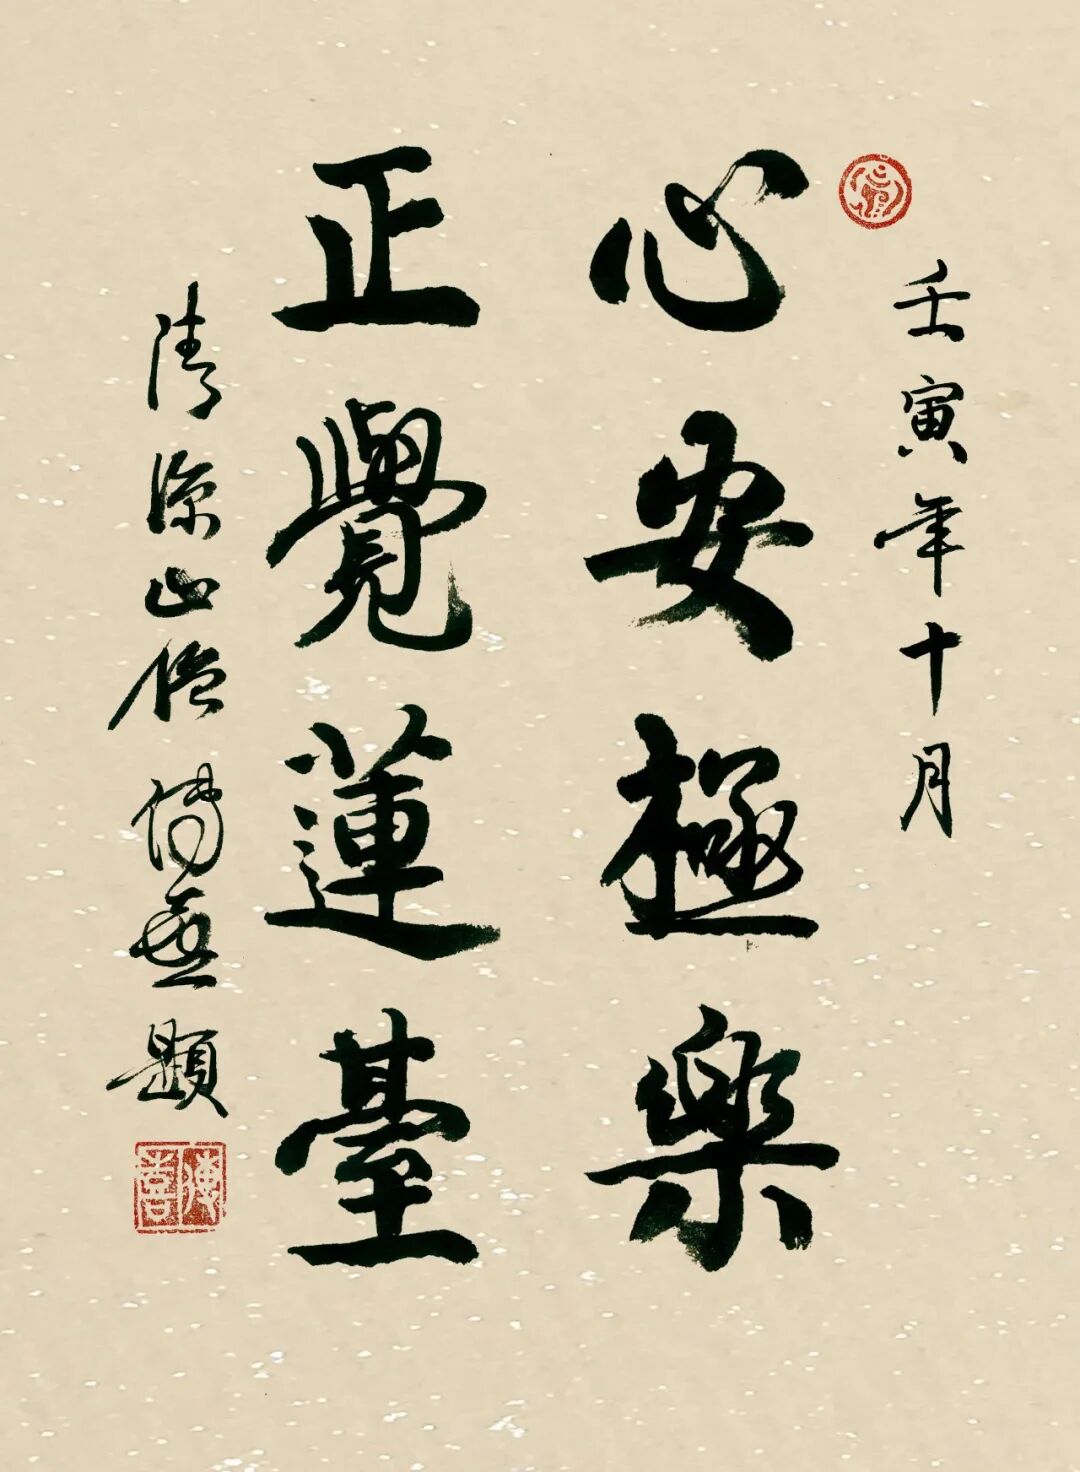 壬寅年十月
心安極樂
正覺蓮臺
清涼山僧傳喜題
傳喜